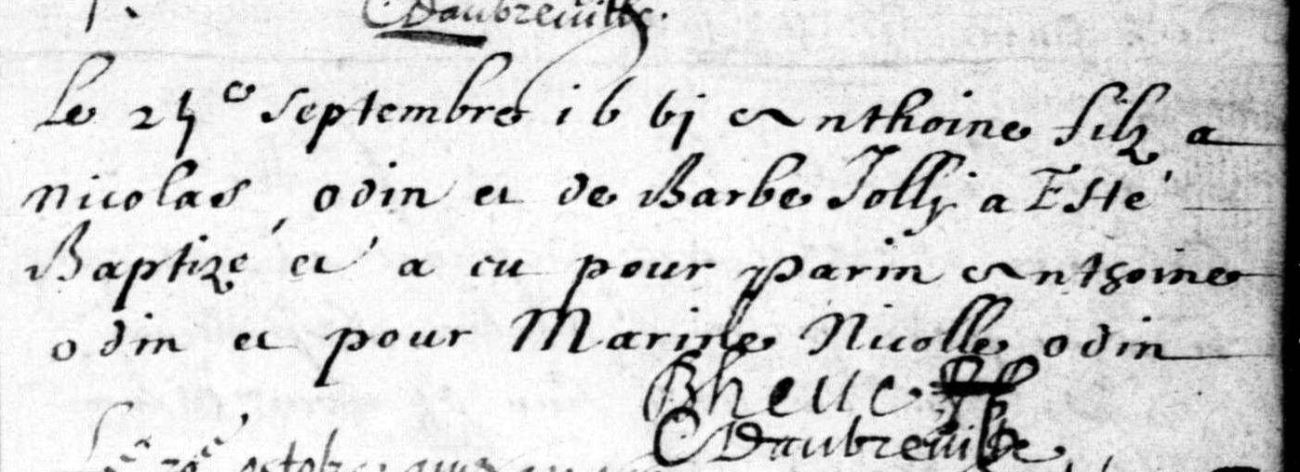 Daubreuille
Le 25e septembre 1661 Anthoine filz a
nicolas odin et de Barbe Jolly a Esté
Baptizé et a eu pour parin Anthoine
odin et pour Marine Nicolle odin
Daubreuille
octobre